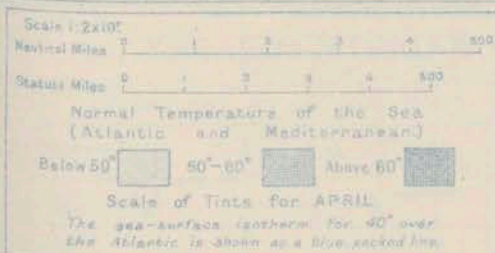 Scale 1:2x10⁷
Nautical Miles 0 1 2 3 4 500
Statute Miles 0 1 2 3 4 500
Normal Temperature of the Sea
(Atlantic and Mediterranean.)
Below 50° 50°-60° Above 60°
Scale of Tints for APRIL
The sea-surface isotherm for 40° over
the Atlantic is shown as a blue pecked line.